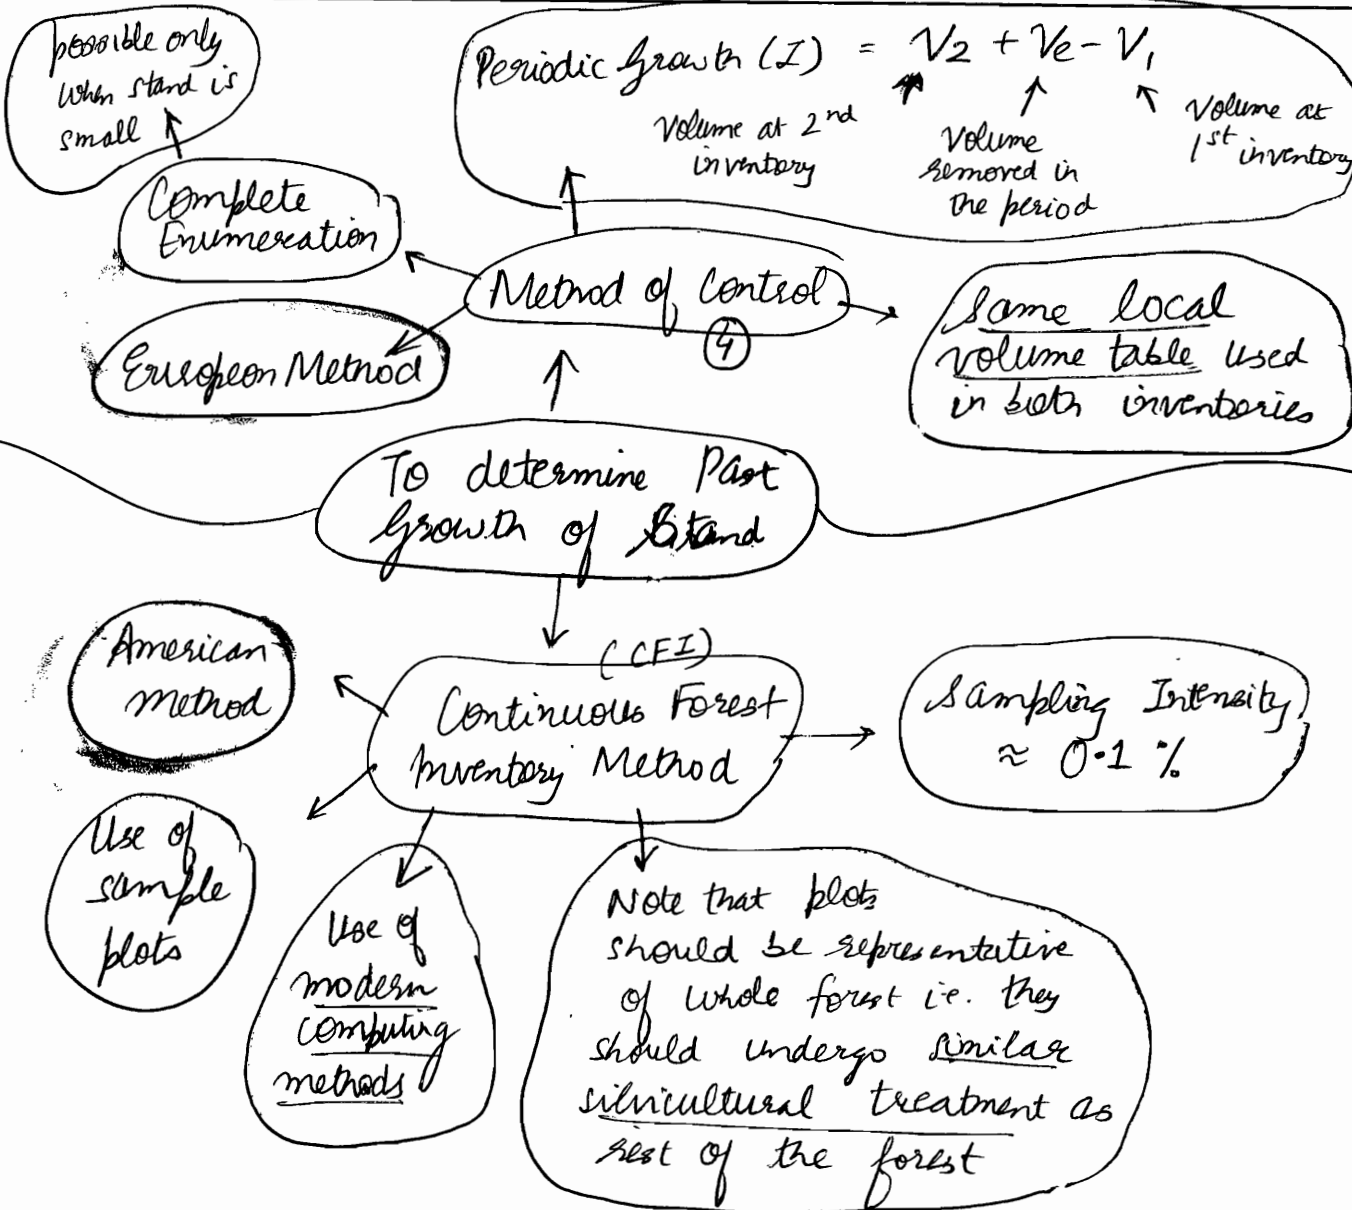 possible only
when stand is
small
Periodic Growth (I) = V2 + Ve - V1
Volume at 2nd
inventory
Volume
removed in
the period
Volume at
1st inventory
Complete
Enumeration
Method of Control
4
European Method
Same local
volume table used
in both inventories
To determine Past
Growth of Stand
American
Method
(CFI)
Continuous Forest
Inventory Method
Sampling Intensity
≈ 0.1 %
Use of
sample
plots
Use of
modern
computing
methods
Note that plots
should be representative
of whole forest i.e. they
should undergo similar
silvicultural treatment as
rest of the forest